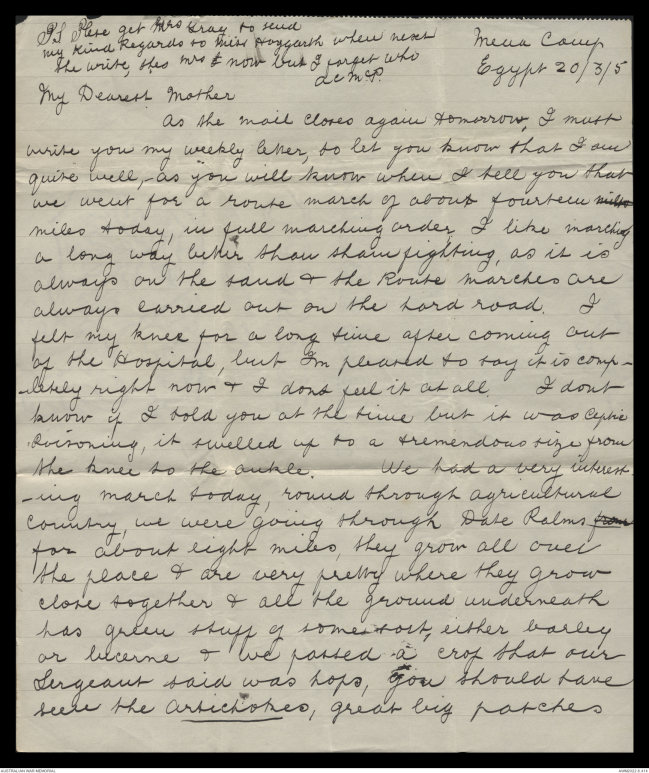 P.S Please get Mrs Gray to send
my kind Regards to Miss Hoggarth when next
she write, shes Mrs & now but I forget who
A C McP.
Mena Camp
Egypt 20/3/5
My Dearest Mother
As the mail closes again tomorrow, I must
write you my weekly letter, to let you know that I am
quite well, as you will know when I tell you that
we went for a route march of about fourteen miles
miles today, in full marching order, I like marching
a long way better than sham fighting, as it is
always on the sand & the Route marches are
always carried out on the hard road. I
felt my knee for a long time after coming out
of the Hospital, but I'm pleased to say it is comp-
-letely right now & I dont feel it at all I dont
know if I told you at the time but it was Ceptic
Poisoning, it swelled up to a tremendous size from
the knee to the ankle. We had a very interest-
-ing march today, round through agricultural
country, we were going through Date Palms from
for about eight miles, they grow all over
the place & are very pretty where they grow
close together & all the ground underneath
has green stuff of some sort, either barley
or lucerne & we passed a crop that our
Sergeant said was hops, you should have
seen the Artichokes, great big patches
AUSTRALIAN WAR MEMORIAL